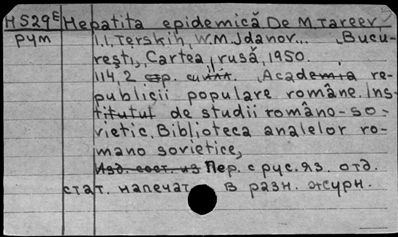 H529E Hepatita epidemică De M.Tareev,
рум I.I.Terskih, W.M.Jdanov... Bucu-
rești, „Cartea rusă", 1950.
114,2 стр. Academia re-
publicii populare române. Ins-
titutul de studii româno-so-
vietic. Biblioteca analelor ro-
mano sovietice,
Изд. сост. из Пер. с рус.яз. отд.
стат. напечат. в разн. журн.